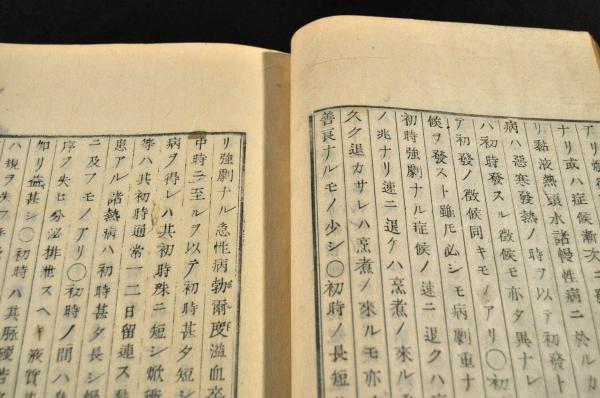 アリ
ナリ或ハ症候漸次ニ發
リ黏液熱頭水諸慢性病ニ於ルカ
病ハ惡寒發熱ノ時ヲ以テ初發ト
ハ初時發スル徴候モ亦タ異ナレ
ア初發ノ徴候同キモノアリ〇
候ヲ發スト雖𪜈必シモ病劇重ナ
初時強劇ナル症候ノ速ニ退クハ
ノ兆ナリ速ニ退ケハ烹煮ノ來ル
久ク退カサレハ烹煮ノ來ルモ亦
善良ナルモノ少シ〇初時ノ長短
リ強劇ナル急性病勃爾度溢血卒
中時ニ至ルヲ以テ初時甚タ短シ
病ヲ得レハ其初時殊ニ短シ焮衝
等ハ其初時通常一二日留連ス
患アル諸熱病ハ初時甚タ長シ
ニ及フモノアリ〇初時ノ間ハ身
序ヲ失ヒ分泌排泄スヘキ液質
加リ益甚シ〇初時ハ其脉硬
ハ規ヲ失フ